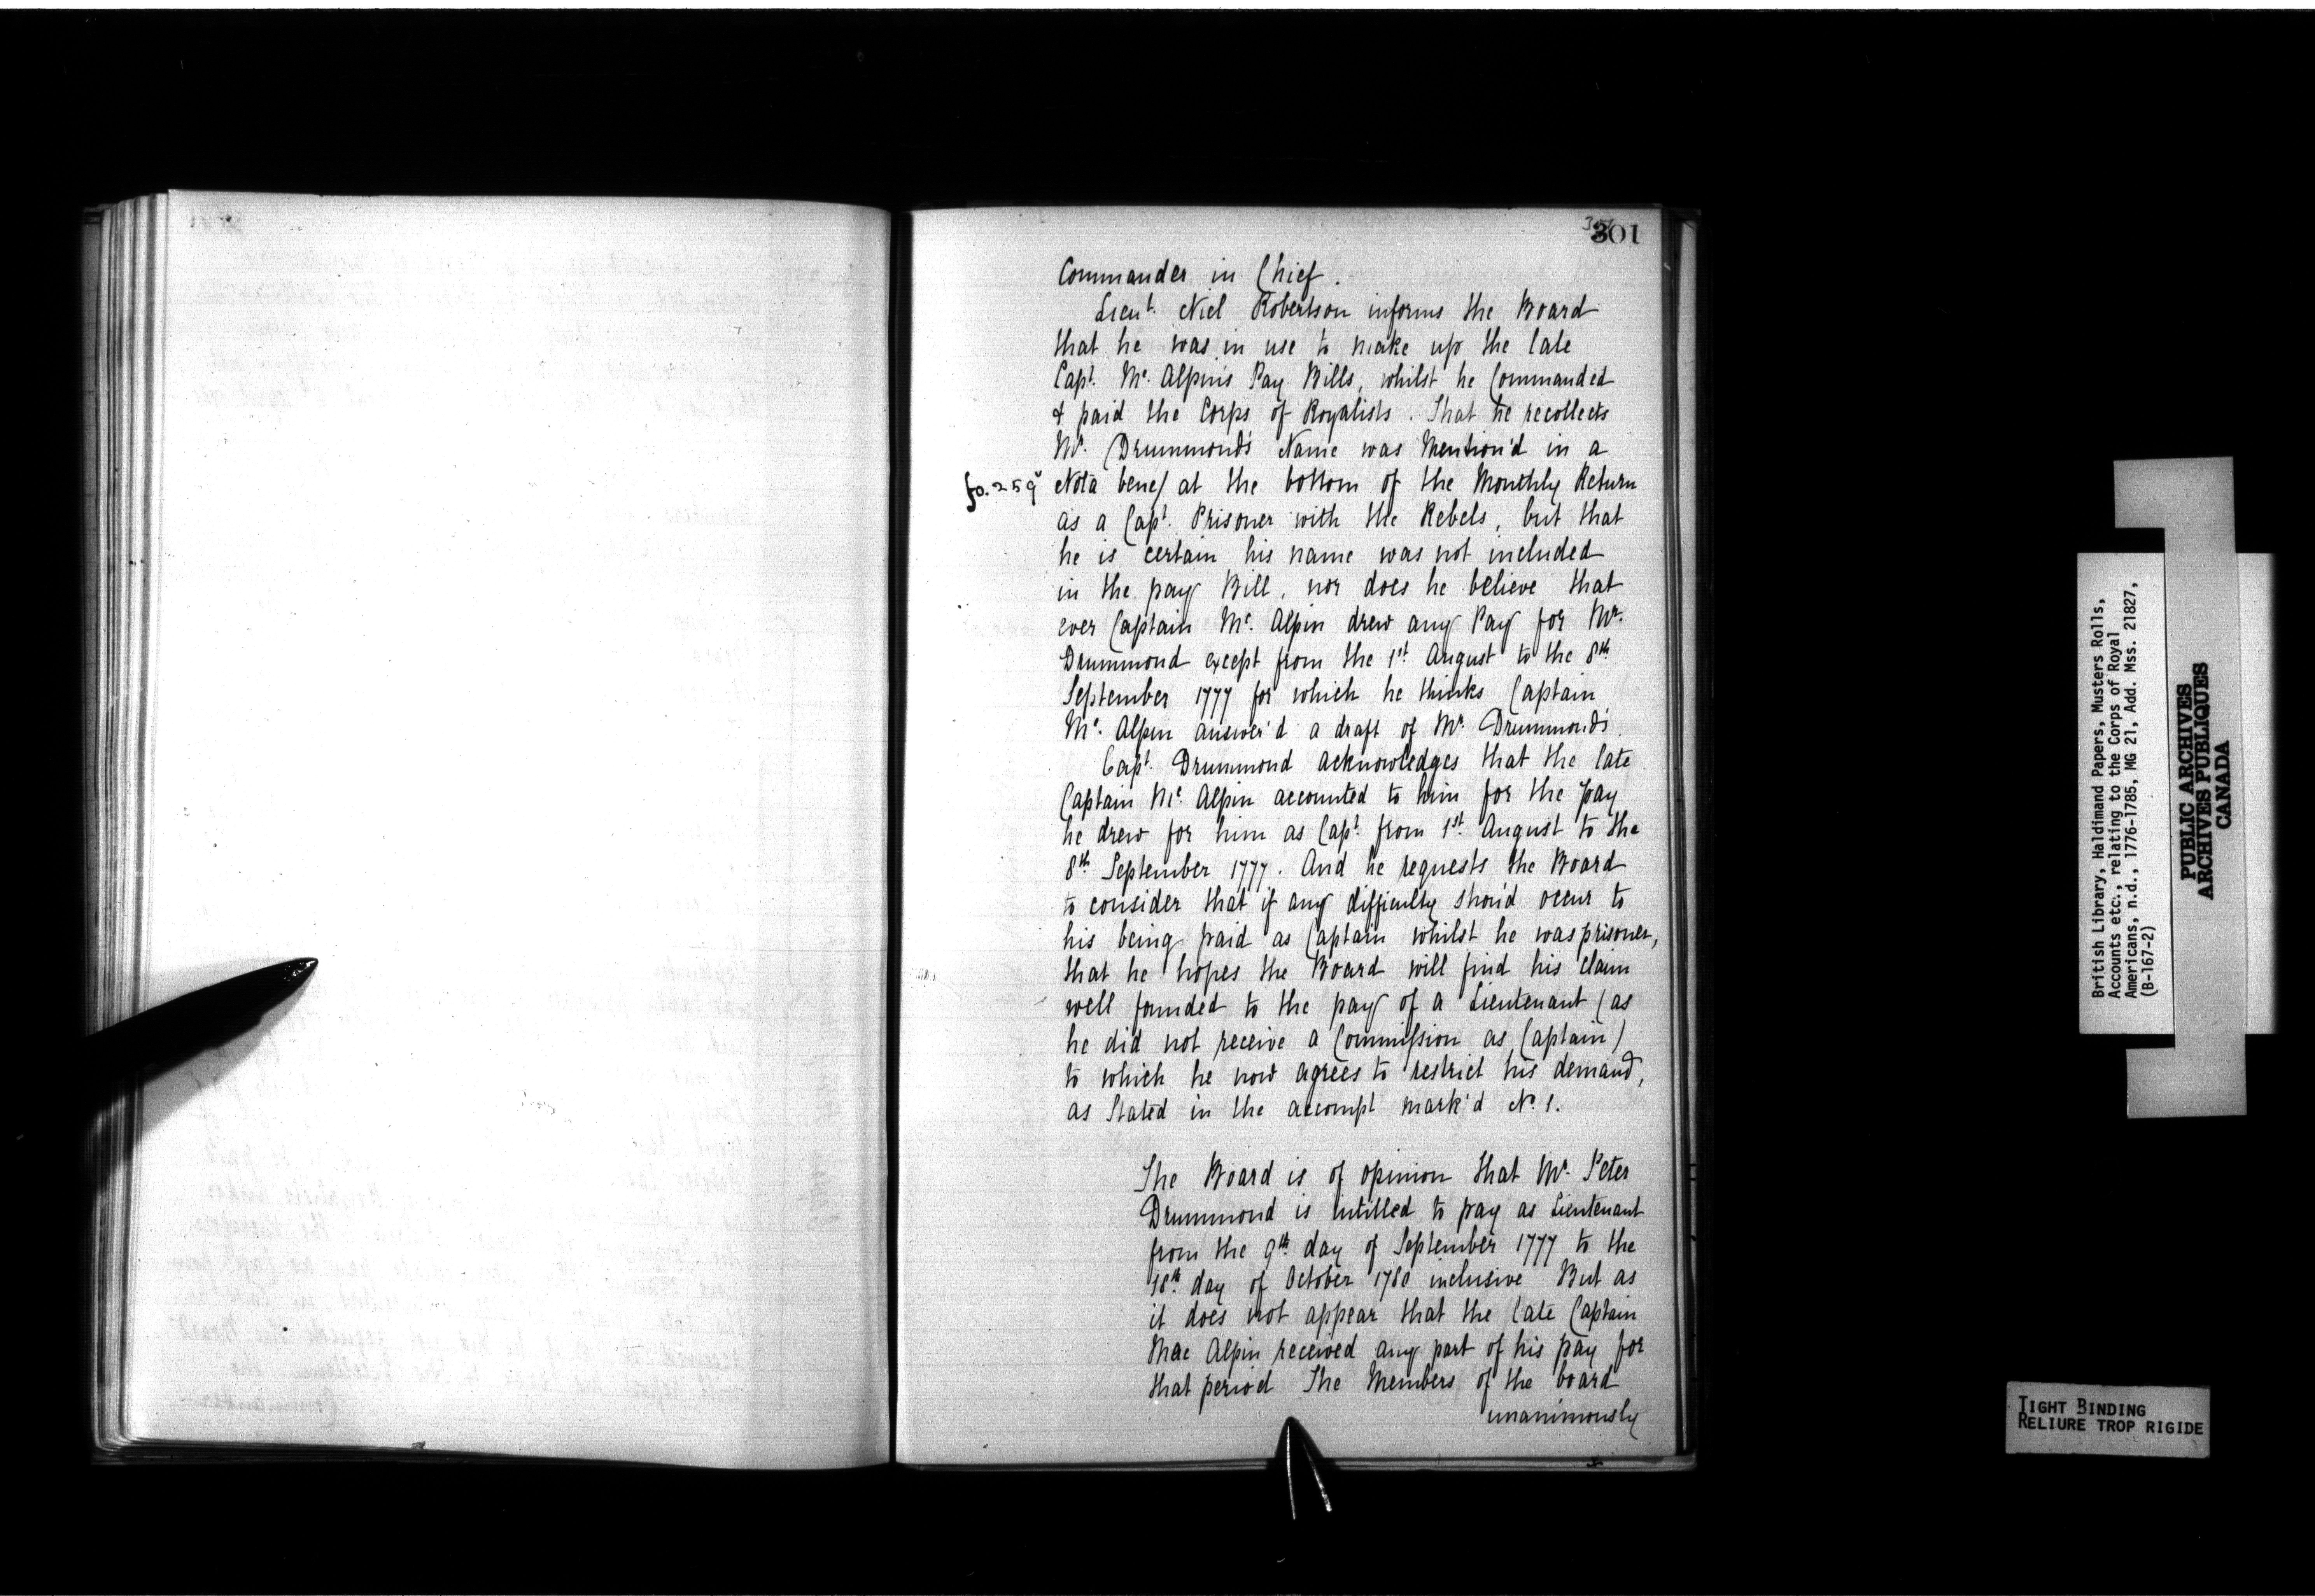 301
Commander in Chief.
Lieut. Niel Robertson informs the Board
that he was in use to make up the late
Capt. Mc. Alpin's Pay Bills, whilst he Commanded
& paid the Corps of Royalists. That he recollects
Mr. Drummond's Name was Mention'd in a
fo. 259v
Nota bene/ at the bottom of the Monthly Return
as a Capt. Prisoner with the Rebels, but that
he is certain his name was not included
in the pay Bill, nor does he believe that
ever Captain Mc. Alpin drew any Pay for Mr.
Drummond except from the 1st August to the 8th
September 1777 for which he thinks Captain
Mc. Alpin answer'd a draft of Mr. Drummond's.
Capt. Drummond acknowledges that the late
Captain Mc. Alpin accounted to him for the pay
he drew for him as Capt. from 1st. August to the
8th September 1777. And he requests the Board
to consider that if any difficulty shou'd occur to
his being paid as Captain whilst he was prisoner,
that he hopes the Board will find his claim
well founded to the pay of a Lieutenant (as
he did not receive a Commission as Captain)
to which he now agrees to restrict his demand,
as Stated in the accompt mark'd No. 1.
The Board is of opinion that Mr. Peter
Drummond is intitled to pay as Lieutenant
from the 9th day of September 1777 to the
18th day of October 1780 inclusive But as
it does not appear that the late Captain
Mac Alpin received any part of his pay for
that period The Members of the board
unanimously
British Library, Haldimand Papers, Musters Rolls,
Accounts etc., relating to the Corps of Royal
Americans, n.d., 1776-1785, MG 21, Add. Mss. 21827,
(B-167-2)
PUBLIC ARCHIVES
ARCHIVES PUBLIQUES
CANADA
TIGHT BINDING
RELIURE TROP RIGIDE